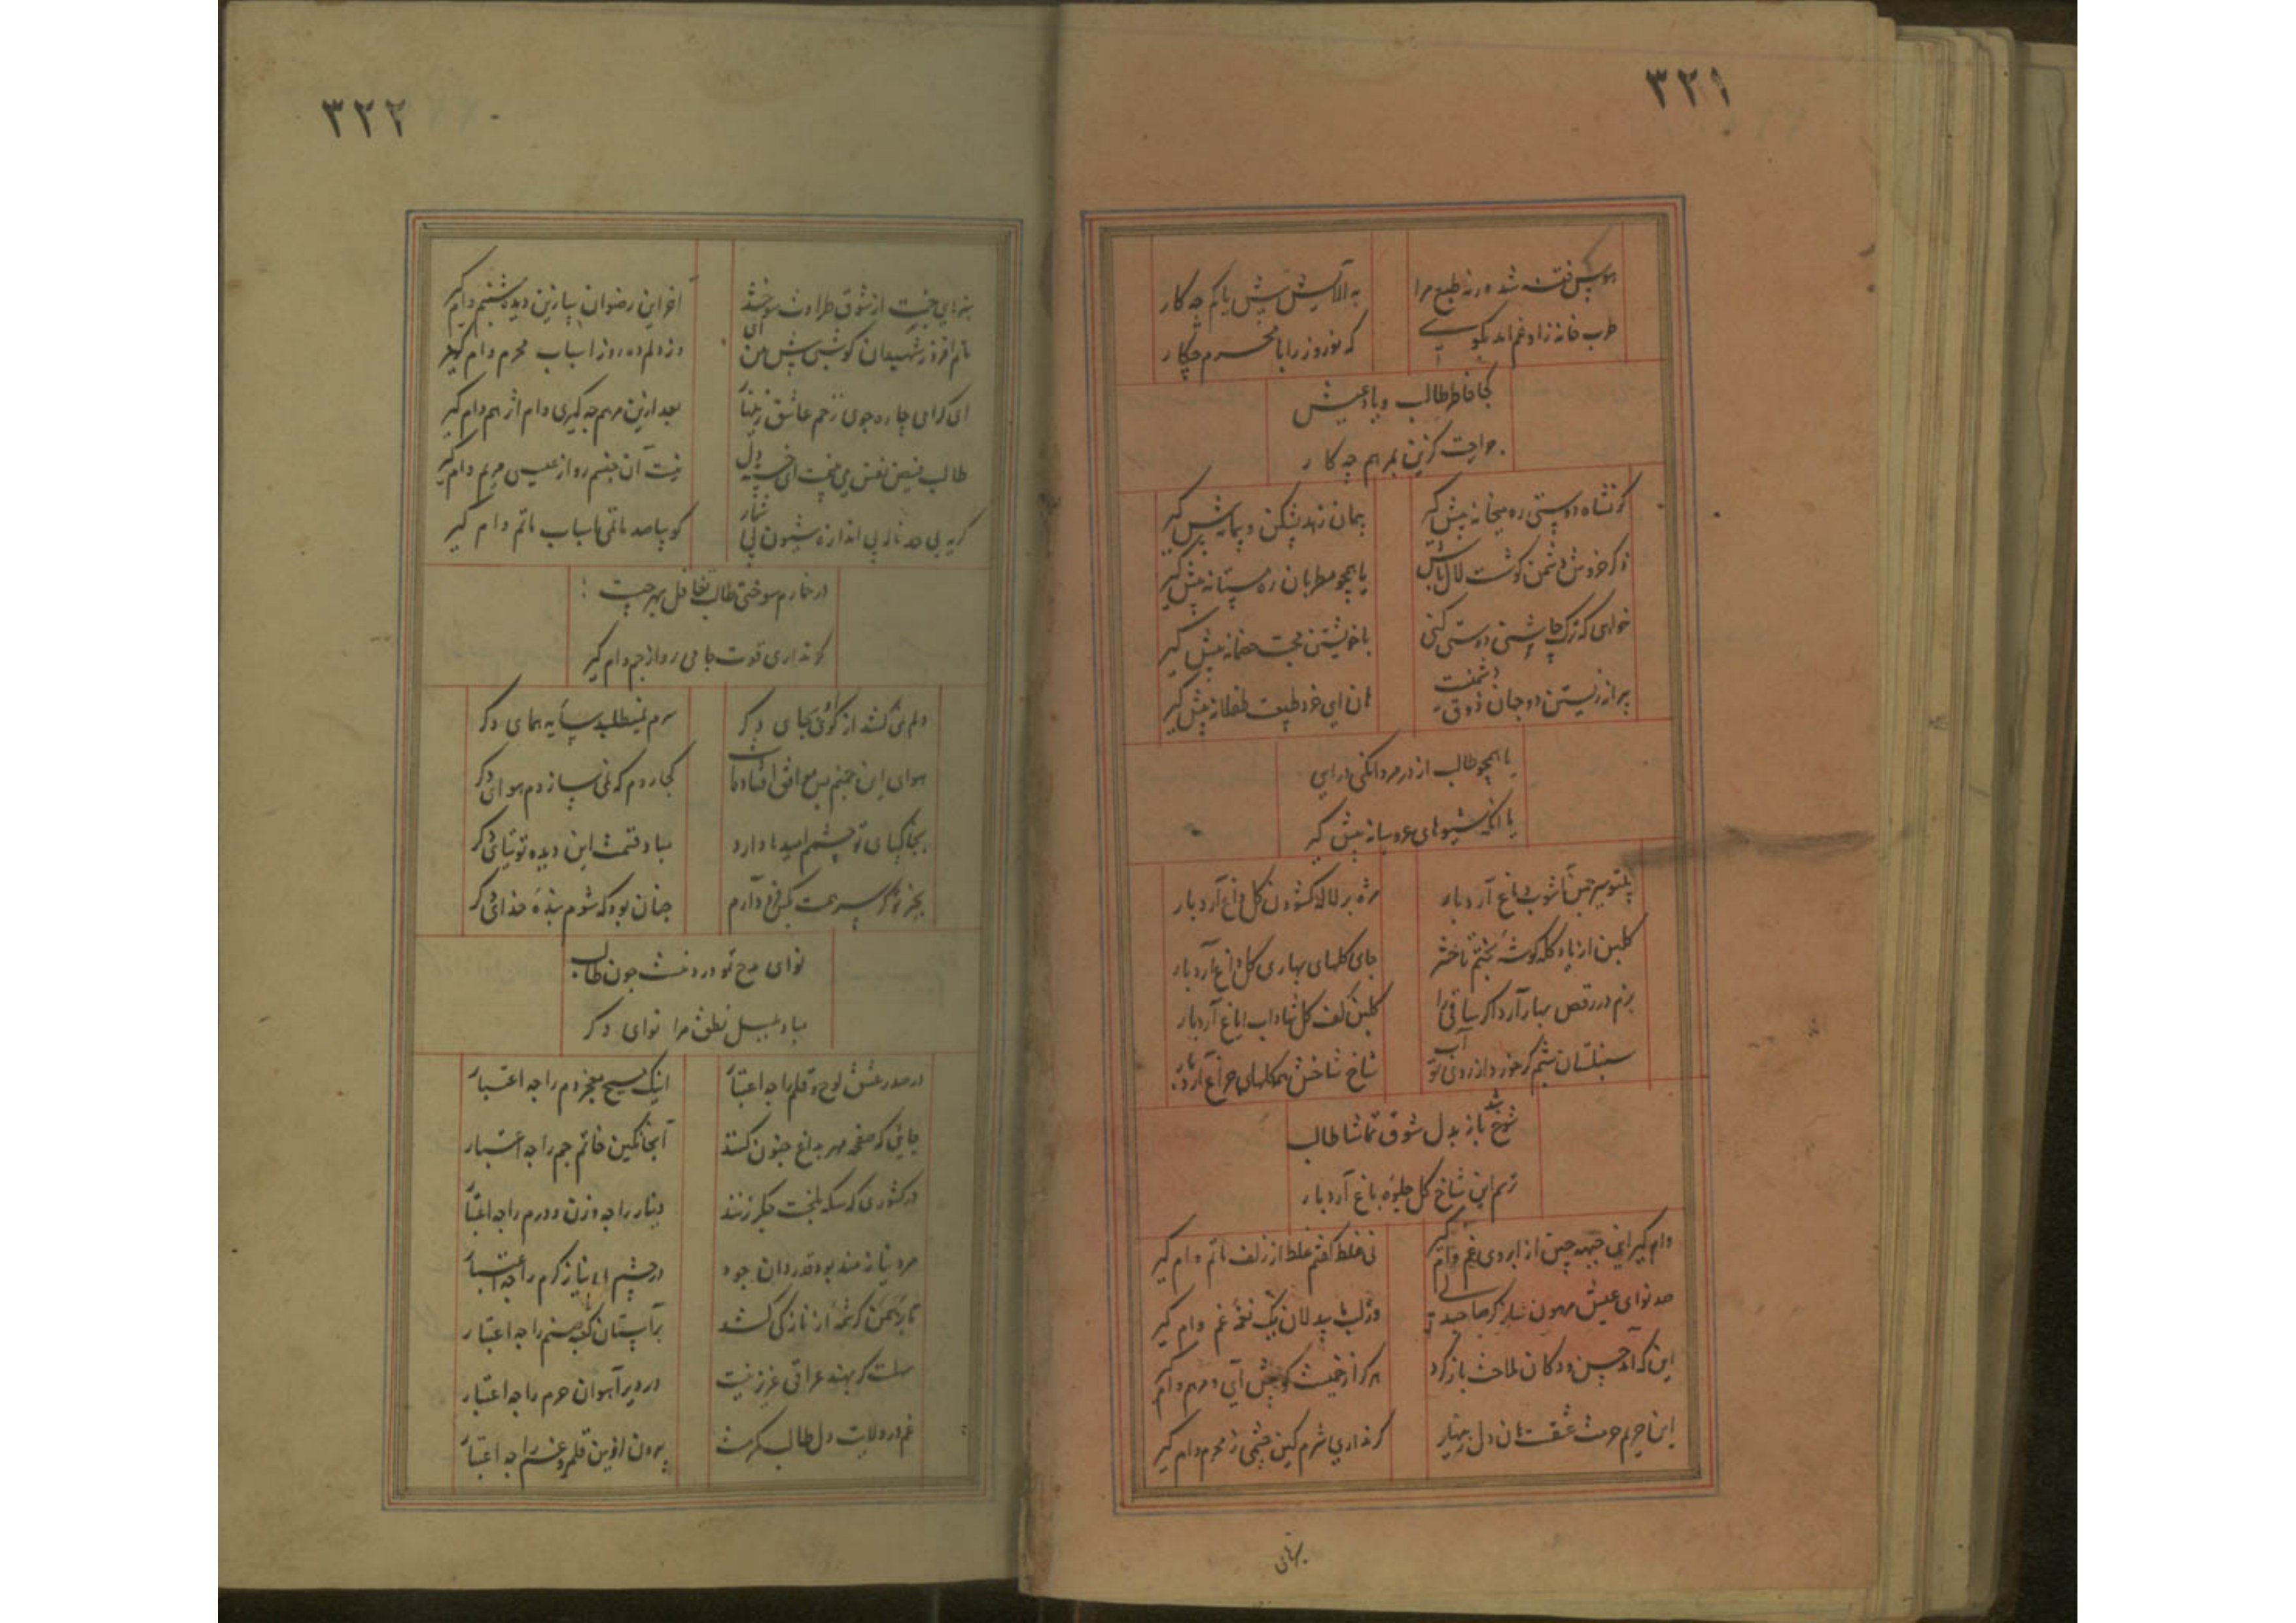 ۳۲۱
هوس فتنه شده ورنه طبع مرا
به آلایش بیش یا کم چه کار
طرب خانه زاد غم اند بکوی
که نوروز را با محرم چکار
کجا خاطر طالب و یاد عیش
جراحت گزین بمرهم چه کار
گر نشاه دوستی ره میخانه پیش گیر
پیمان زهد بشکن و پیمانه پیش گیر
گر خروش دشمن گوشت لال باش
یا همچو مطربان ره مستانه پیش گیر
خواهی که ترک چاشنی دوستی کنی
با خویشتن محبت خصمانه پیش گیر
پیرانه زیستن دو جهان ذوق دشمنست
هان ای خرد طبیعت طفلانه پیش گیر
یا همچو طالب از در مردانگی درای
یا انکه شیوهای عروسانه پیش گیر
بیتو سیر چمن آشوب دماغ آرد بار
مژه بر لاله گشودن گل داغ آرد بار
گلبن از یاد گله گوشه بختم تا حشر
جای گلهای بهاری گل داغ آرد بار
بزم در رقص بهار آرد اگر ساقی را
گلبن کف گل شاداب ایاغ آرد بار
سنبلستان شبم گر خورد از روی تو آب
شاخ شاخش همه گلهای چراغ آرد بار
شوخ شد باز بدل شوق تماشا طالب
ترسم این شاخ گل جلوه باغ آرد بار
وام گیر ای جبهه چین از ابروی غم وام گیر
نی غلط گفتم غلط از زلف ماتم وام گیر
صد نوای عیش مرهون ساز کرها
وز لب بیدلان یک نغمه غم وام گیر
این که آمد حسن و دکان ملاحت باز کرد
این حریم حرمت عشقست هان دل زینهار
گر نداری شرم گین چشمی ز محرم وام گیر
۳۲۲
سبزهای جنت از شوق طراوت سوختند
آخر این رضوان بیا زین دیده شبنم وام گیر
ماتم افروز شهیدان گوشه‌ی پیش من آی
وز دلم ده روز اسباب محرم وام گیر
ای گرامی چاره جوی زخم عاشق زینهار
بعد ازین مرهم چه گیری وام اثر هم وام گیر
طالب فیض نفس می نخت ای خسته دل
نیست آن جنسم رو از عیسی مریم وام گیر
گریه بی حد ناله بی اندازه شیون بی شمار
گو بیا صد ماتمی اسباب ماتم وام گیر
در خمارم سوختی طالب تغافل بهر چیست
گر نداری قوت جامی رو از جم وام گیر
دلم نمی کشد از کوی او بجای دگر
سرم نمیطلبد سایه همای دگر
هوای این چمنم بس موافق افتادست
کجا روم که نمی سازدم هوای دگر
بخاکپای تو چشمم امیدها دارد
مباد قسمت این دیده توتیای دگر
بجز تو گر سر همت بکس فرود آرم
چنان بود که شوم بنده خدای دگر
نوای مدح تو ورد منست چون طالب
مباد بلبل نطق مرا نوای دگر
در صدر عشق لوح و قلم را چه اعتبار
اینک مسیح معجز دم را چه اعتبار
جایی که صفحه مهر بداغ جنون کنند
آنجا نگین خاتم جم را چه اعتبار
در کشوری که سکه بلخت جگر زنند
دینار را چه وزن و درم را چه اعتبار
مرد نیازمند بود قدردان جود
در چشم بی نیاز کرم را چه اعتبار
تا برهمن کرشمه از ناز کی کشد
بر آستان کعبه صنم را چه اعتبار
سهلست گر بهند عراقی عزیز نیست
در دیر آهوان حرم را چه اعتبار
غم در ولایت دل طالب گرمست
بیرون ازین قلمرو غم را چه اعتبار